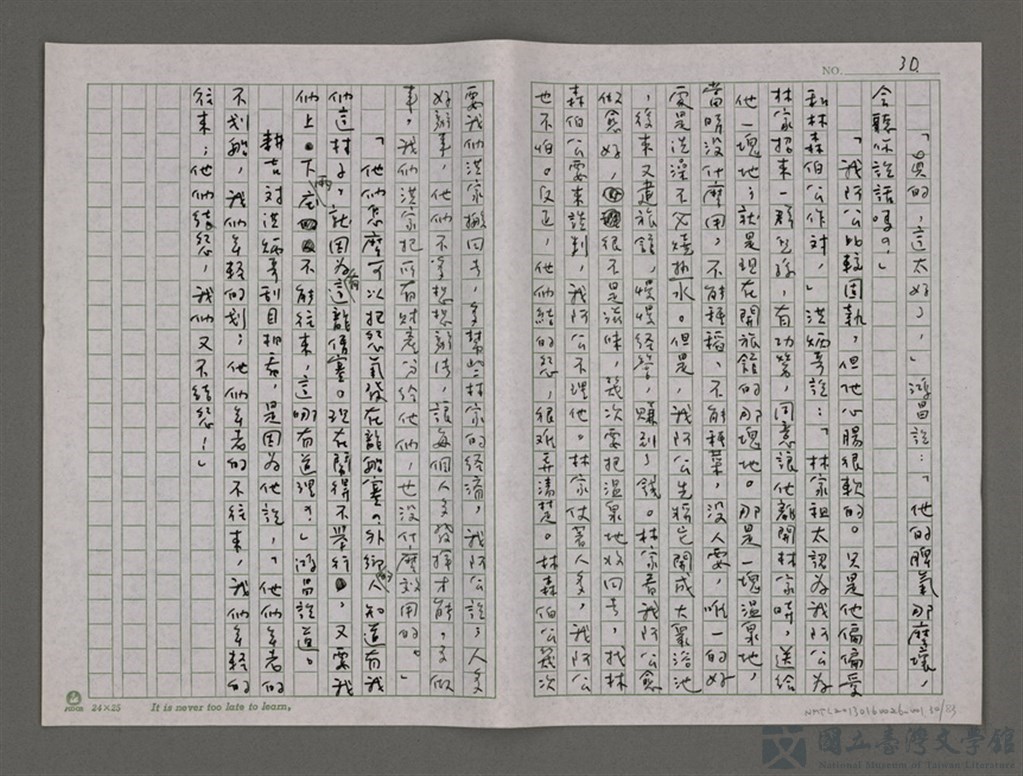 NO. 30.
「真的，這太好了，」鴻昌說：「他的脾氣那麼壞，
會聽你說話嗎？」
「我阿公比較固執，但他心腸很軟的。只是他偏偏愛
和林森伯公作對，」洪炳哥說：「林家祖太認為我阿公為
林家招來一群兒孫，有功勞，同意讓他離開林家時，送給
他一塊地；就是現在開旅館的那塊地。那是一塊溫泉地，
當時沒什麼用，不能種稻、不能種菜，沒人要，唯一的好
處是洗澡不必燒熱水。但是，我阿公先將它開成大眾浴池
，後來又建旅館，慢慢經營，賺到了錢。林家看我阿公愈
做愈好，很不是滋味，幾次要把溫泉地收回去，找林
森伯公要來談判，我阿公不理他。林家仗著人多，我阿公
也不怕。反正，他們結的怨，很難弄清楚。林森伯公幾次
要我們洪家搬回去，多幫些林家的經濟，我阿公說，人多
好辦事，他們不多想想辦法，讓每個人多發揮才能，多做
事，我們洪家把所有財產分給他們，也沒什麼效用的。」
「他們怎麼可以把怨氣發在龍船寨？外鄉的人知道有我
們這村子，就因為有這龍船寨。現在鬧得不舉行，又要我
們上、下底兩不能往來，這哪有道理？」鴻昌說道。
耕吉對洪炳哥刮目相看，是因為他說，「他們年老的
不划船，我們年輕的划；他們年老的不往來，我們年輕的
往來；他們結怨，我們又不結怨！」
24×25
It is never too late to learn,
國立臺灣文學館
National Museum of Taiwan Literature